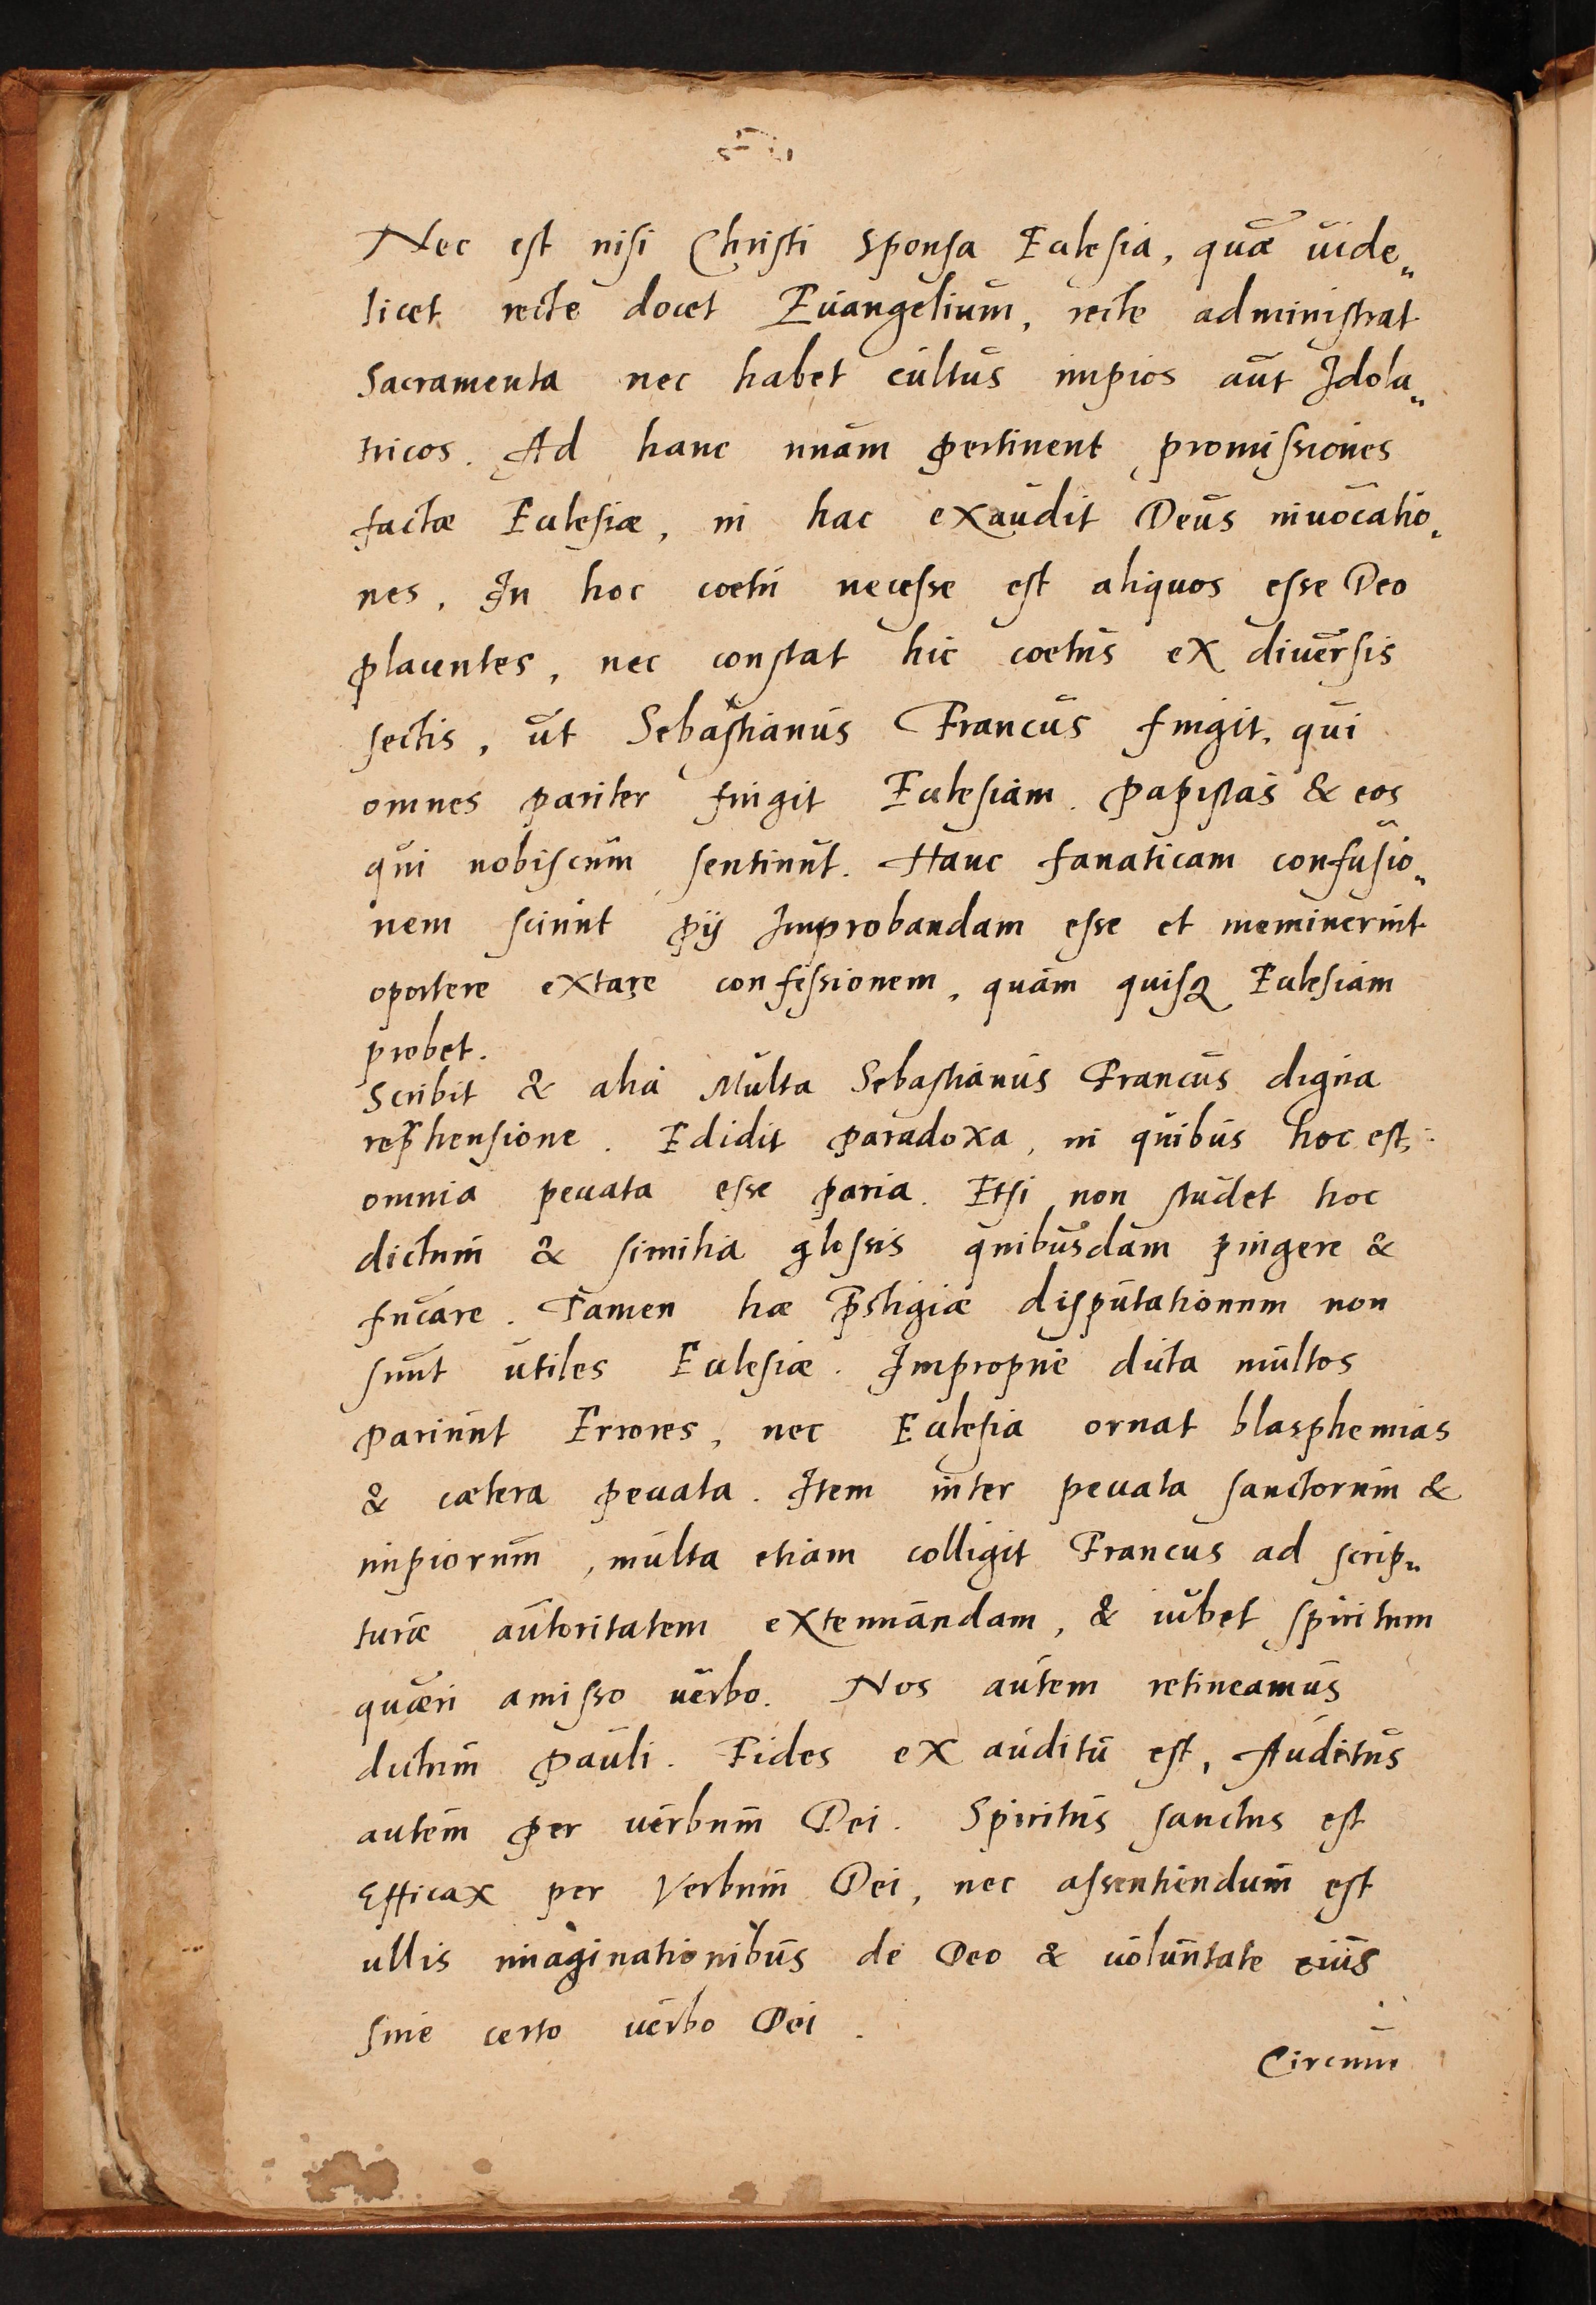 Nec est nisi Christi sponsa Ecclesia, quæ uide„
licet recte docet Euangelium, recte administrat
Sacramenta nec habet cultus impios aut Idola„
tricos. Ad hanc unam pertinent promissiones
factæ Ecclesiæ, in hac exaudit Deus inuocatio„
nes, In hoc coetu necesse est aliquos esse Deo
placentes, nec constat hic coetus ex diuersis
sectis, ut Sebastianus Francus fingit, qui
omnes pariter fingit Ecclesiam. papistas & eos
qui nobiscum sentiunt. Hanc fanaticam confusio„
nem sciunt pij Improbandam esse et meminerint
oportere extare confessionem, quam quisq Ecclesiam
probet.
Scribit & alia Multa Sebastianus Francus digna
rep̄hensione. Edidit paradoxa, in quibus hoc est,
omnia peccata esse paria. Etsi non studet hoc
dictum & similia glossis quibusdam pingere &
fucare. Tamen hæ p̄stigiæ disputationum non
sunt utiles Ecclesiæ. Improprie dicta multos
pariunt Errores, nec Ecclesia ornat blasphemias
& cætera peccata. Item inter peccata sanctorum &
impiorum, multa etiam colligit Francus ad scrip„
turæ autoritatem extenuandam, & iubet spiritum
quæri amisso uerbo. Nos autem retineamus
dictum pauli. Fides ex auditu est, Auditus
autem per uerbum Dei. Spiritus sanctus est
Efficax per Verbum Dei, nec assentiendum est
ullis imaginationibus de Deo & uoluntate eius
sine certo uerbo Dei.
Circum